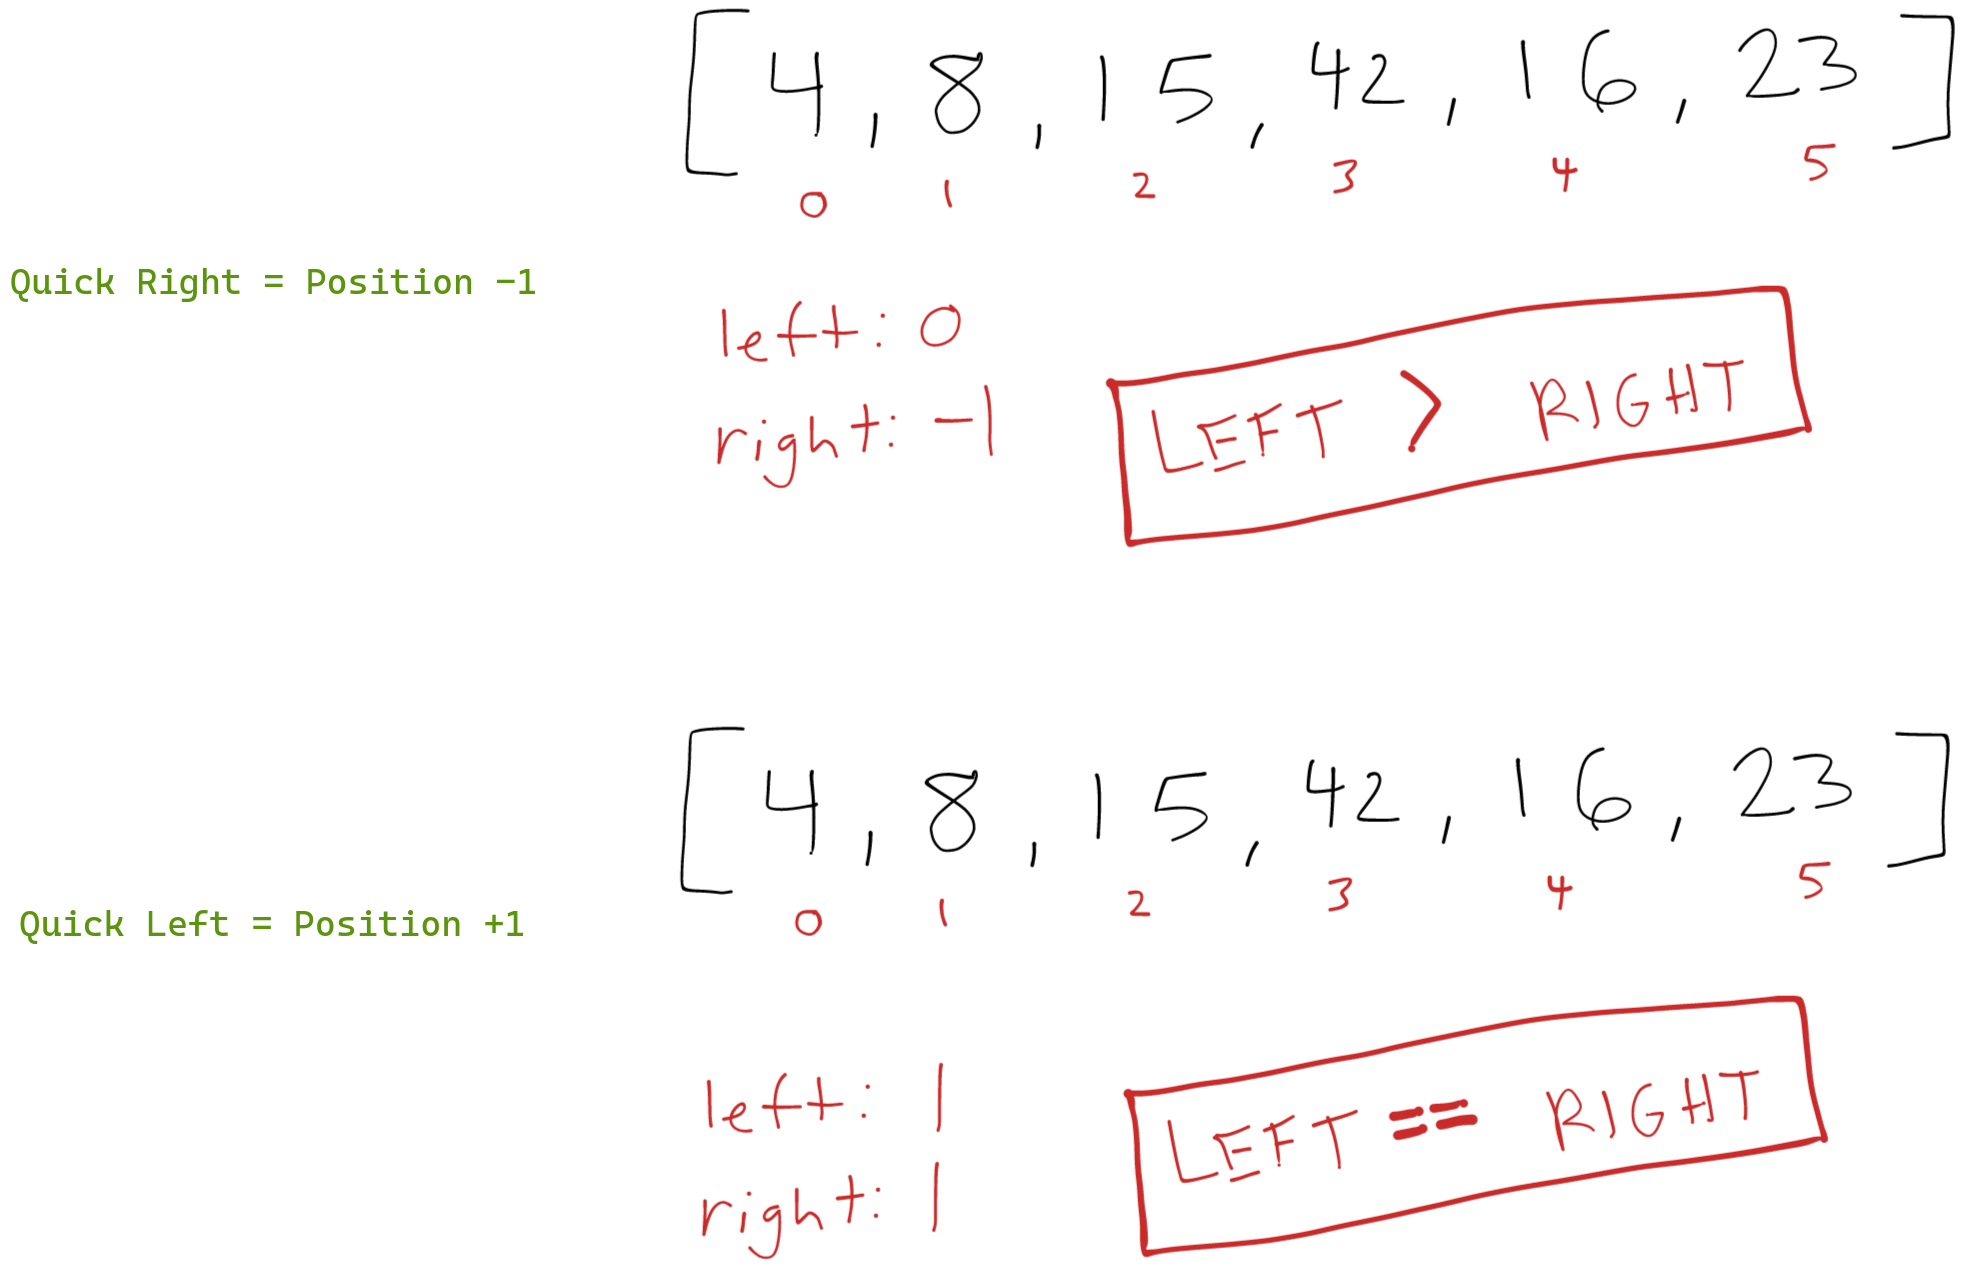 [4, 8, 15, 42, 16, 23]
0 1 2 3 4 5
Quick Right = Position -1
left: 0
right: -1
LEFT > RIGHT
[4, 8, 15, 42, 16, 23]
0 1 2 3 4 5
Quick Left = Position +1
left: 1
right: 1
LEFT == RIGHT